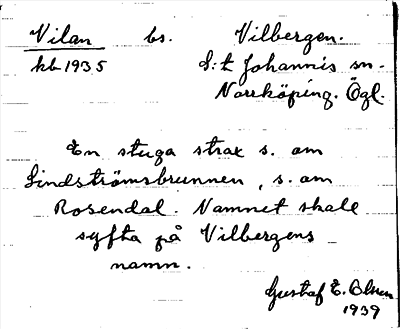 Vilan bs. Vilbergen.
kb 1935 S:t Johannis sn.
Norrköping. Ögl.
En stuga strax s. om
Lindströmsbrunnen, s. om
Rosendal. Namnet skall
syfta på Vilbergens
namn.
Gustaf E. Olsson
1939